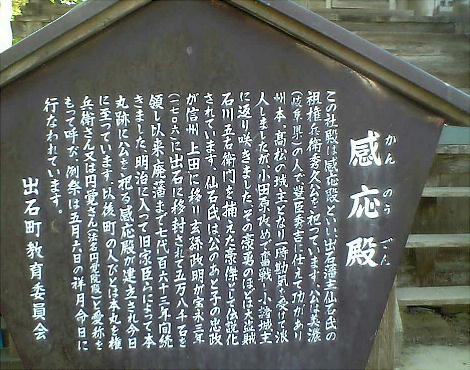 感応殿
かんのうでん
この社殿は感応殿といい出石藩主仙石氏の
祖権兵衛秀久公を祀っています。公は美濃
(岐阜県)の人で豊臣秀吉に仕えて功があり
州本、高松の城主となり一時勘気を受けて浪
人しましたが小田原攻めで奮戦し小諸城主
に返り咲きました。その豪勇のほどは大盗賊
石川五右衛門を捕えた豪傑として伝説化
されています。仙石氏は公のあと子の忠政
が信州上田に移り玄孫政明が宝永三年
(一七〇六)に出石に移封されて五万八千石を
領し以来廃藩まで七代百六十三年間続
きました。明治に入って旧家臣らによって本
丸跡に公を祀る感応殿が建立され今日
に至っています。以後町の人びとは本丸を権
兵衛さん又は円愛さん(法名円覚院殿)と愛称を
もって呼び、例祭は五月六日の祥月命日に
行なわれています。
出石町教育委員会